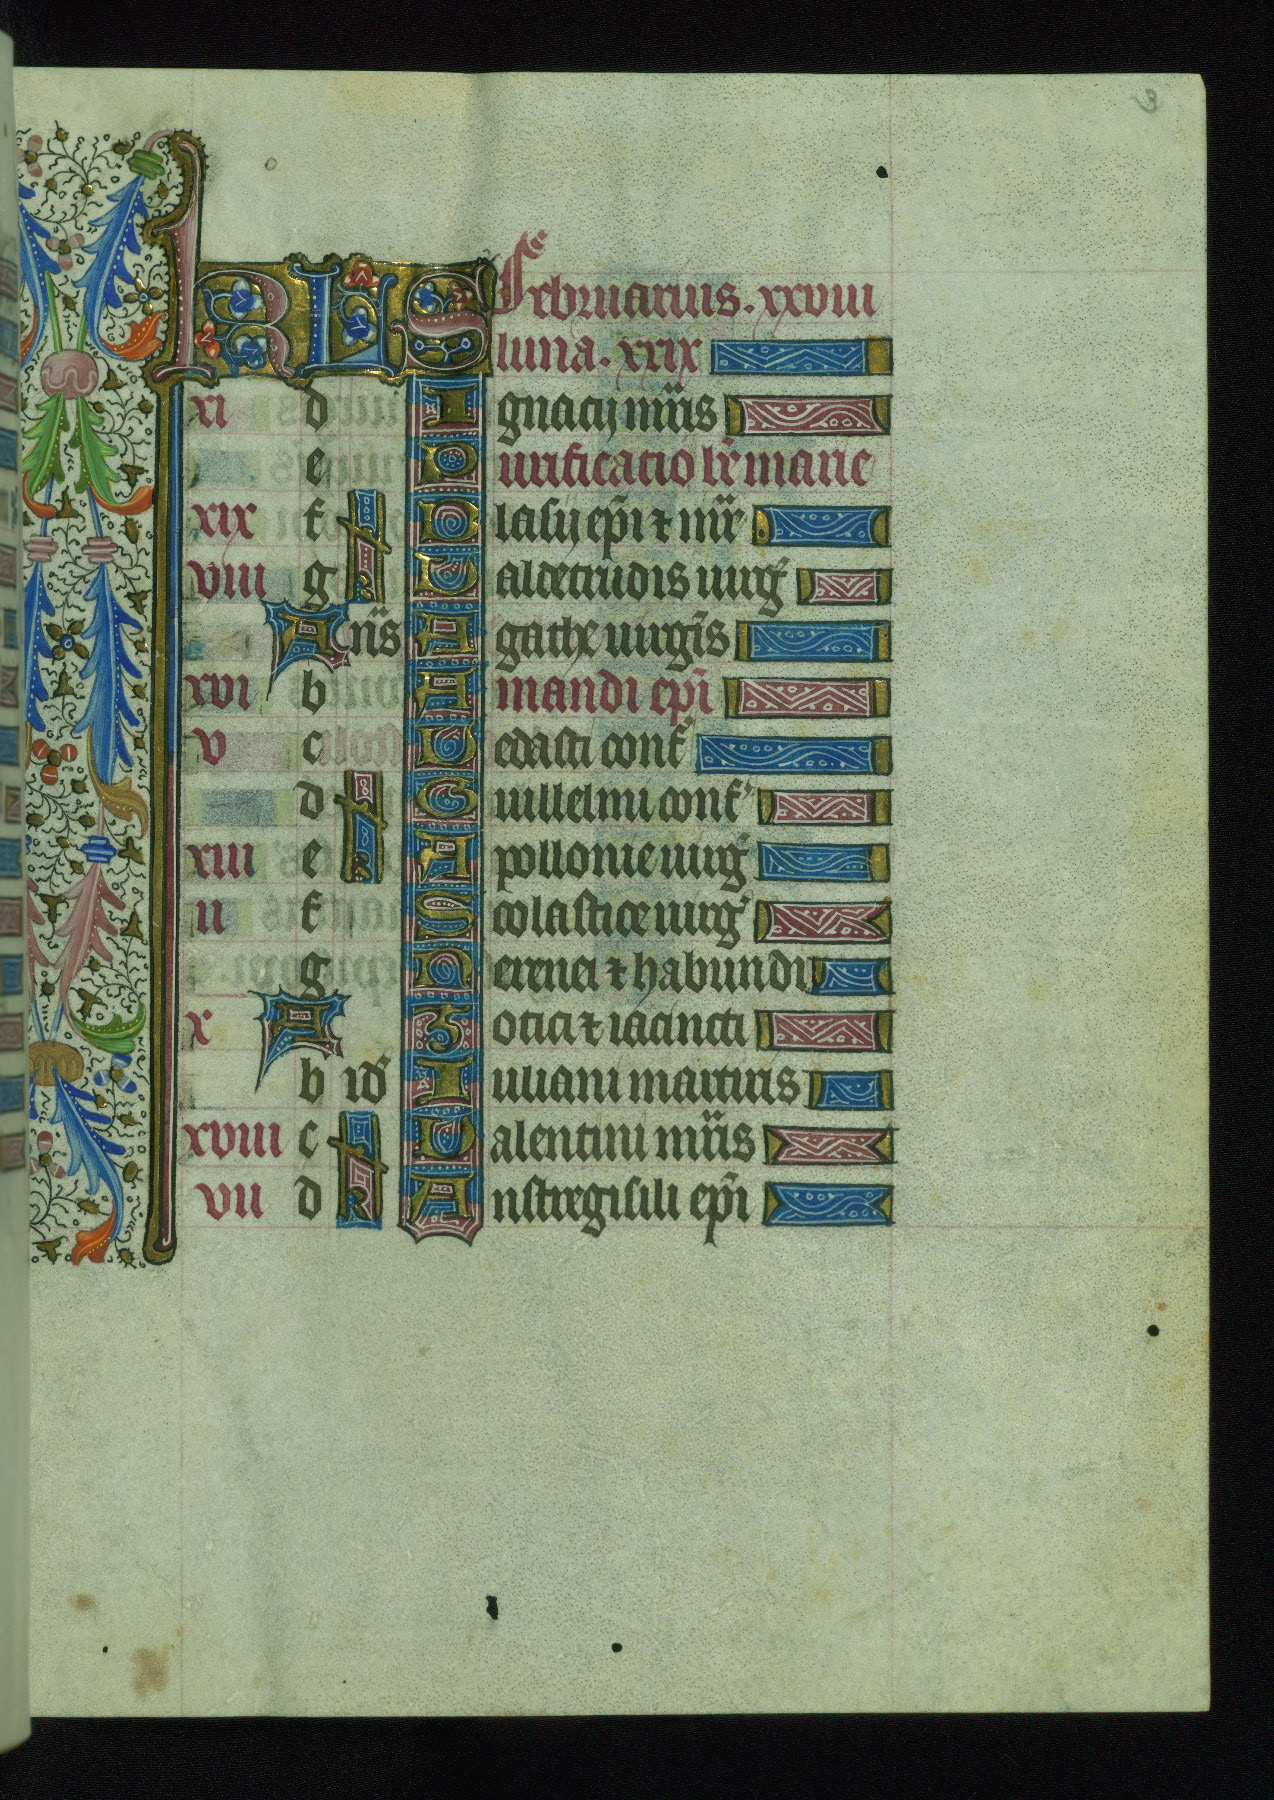 KL Februarius. xxviii
luna. xxix
xi d Ignacij mr̄is
e Purificatio bē marie
xix f Blasij ep̄i ⁊ mr̄
viii g Aldetrudis uirḡ
A nīs Agathe uirgīs
xvi b Amandi ep̄i
v c Vedasti conf̄
d Guillelmi conf̄
xiii e Appollonie uirḡ
ii f Scolastice uirḡ
g Herenei ⁊ habundii
x A Zotici ⁊ iacincti
b id̄ Iuliani martiris
xviii c Valentini mr̄is
vii d Anstregisili ep̄i